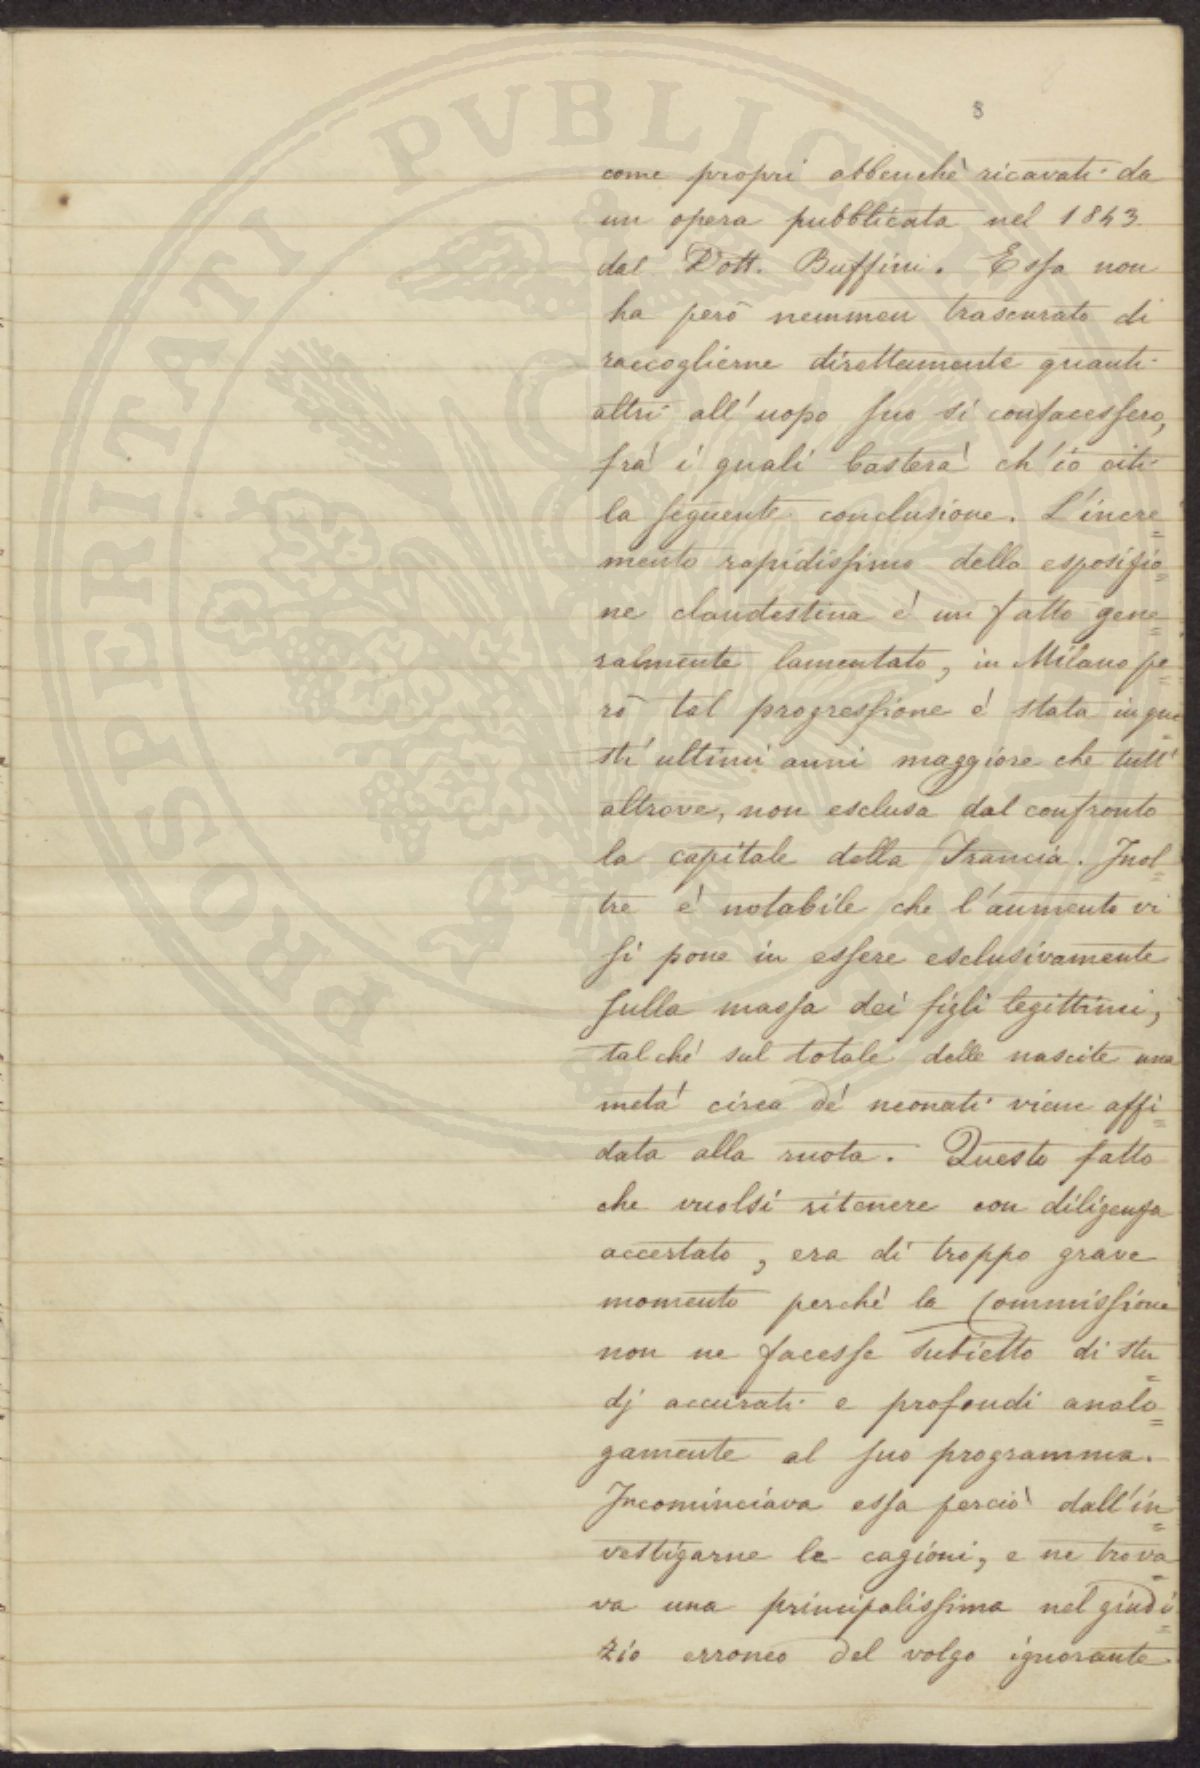 8
come propri abbenchè ricavati da
un opera pubblicata nel 1843
dal Dott. Buffini. Essa non
ha però nemmen trascurato di
raccoglierne direttamente quanti
altri all'uopo suo si confacessero,
frà i quali basterà ch'io citi
la seguente conclusione. L'incre=
mento rapidissimo della esposizio=
ne clandestina è un fatto gene=
ralmente lamentato, in Milano pe=
rò tal progressione è stata in que=
sti ultimi anni maggiore che tutt'
altrove, non esclusa dal confronto
la capitale della Francia. Inol=
tre è notabile che l'aumento vi
si pone in essere esclusivamente
sulla massa dei figli legittimi,
talchè sul totale delle nascite una
metà circa dè neonati viene affi=
data alla ruota. Questo fatto
che vuolsi ritenere con diligenza
accertato, era di troppo grave
momento perchè la Commissione
non ne facesse subietto di stu=
dj accurati e profondi analo=
gamente al suo programma.
Incominciava essa perciò dall'in=
vestigarne le cagioni, e ne trova=
va una principalissima nel giudi=
zio erroneo del volgo ignorante
PROSPERITATI PUBLICAE